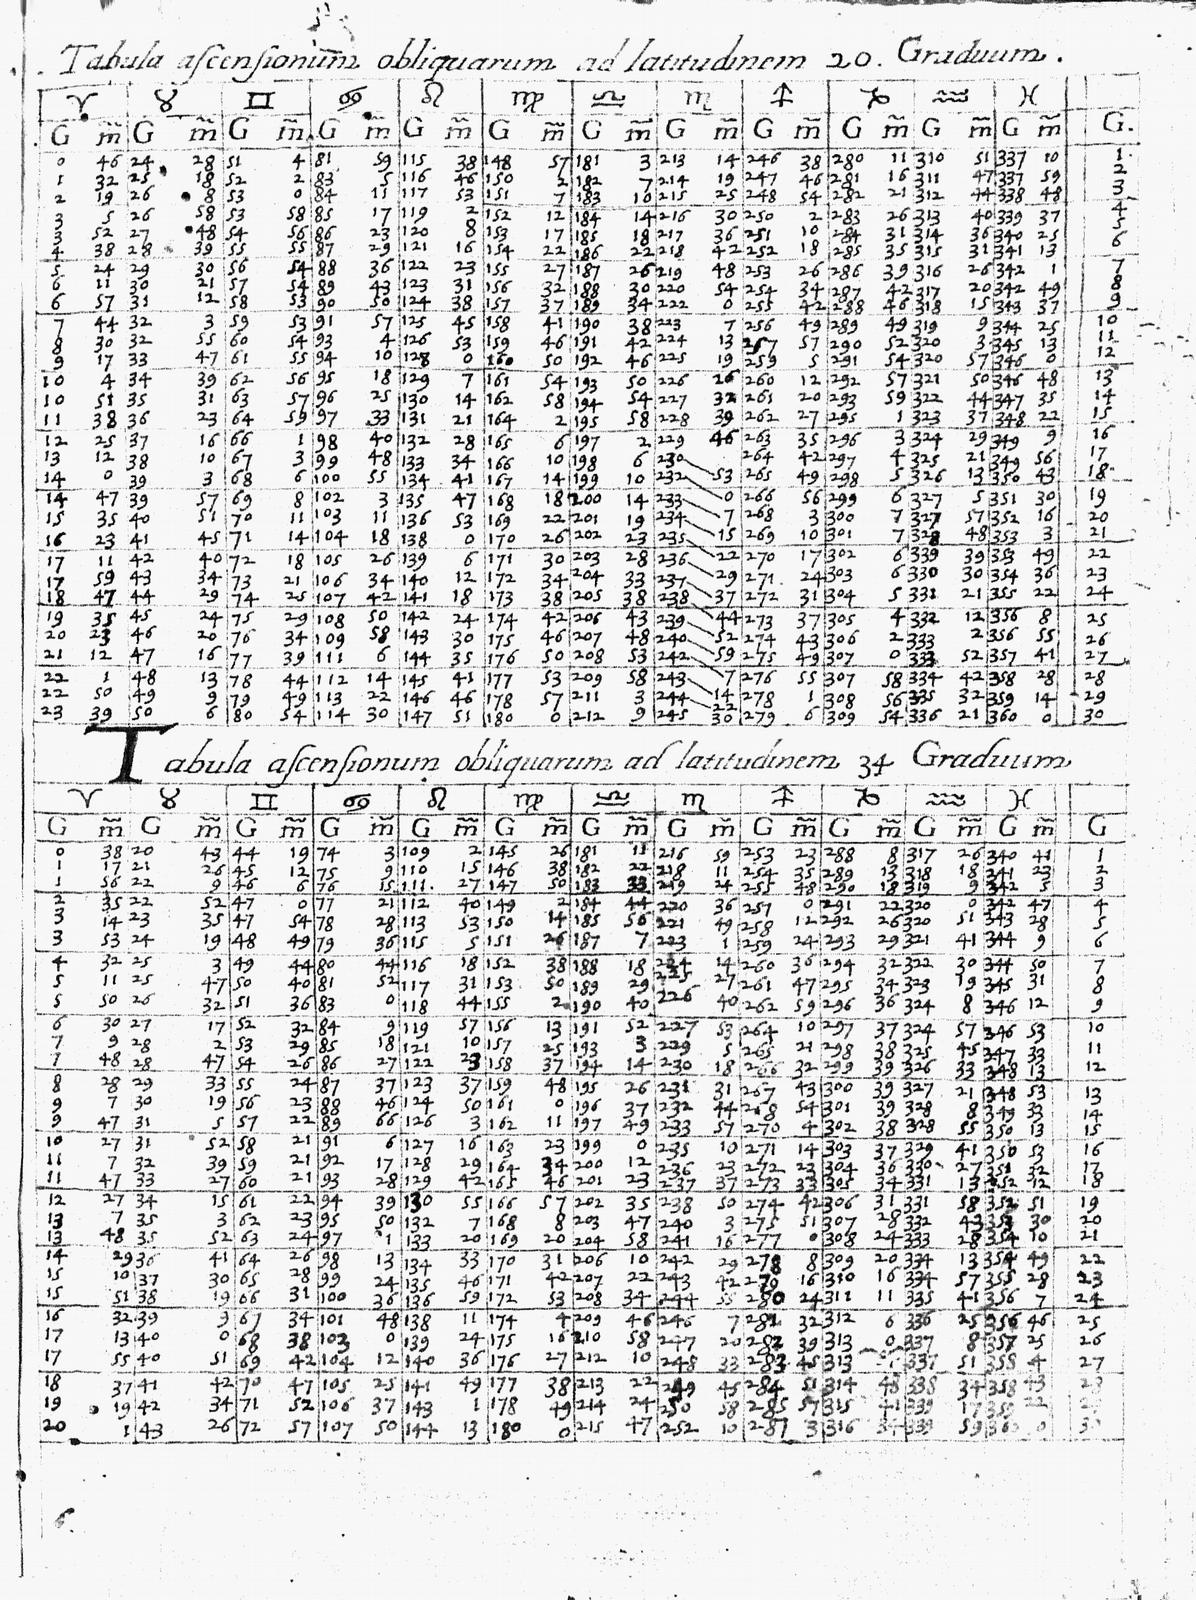 Tabula ascensionum̄ obliquarum ad latitudinem 20. Graduum.
♈ ♉ ♊ ♋ ♌ ♍ ♎ ♏ ♐ ♑ ♒ ♓
G m̃ G m̃ G m̃ G m̃ G m̃ G m̃ G m̃ G m̃ G m̃ G m̃ G m̃ G m̃ G.
0 46 24 28 51 4 81 59 115 38 148 57 181 3 213 14 246 38 280 11 310 51 337 10 1
1 32 25 18 52 2 83 5 116 46 150 2 182 7 214 19 247 46 281 16 311 47 337 59 2
2 19 26 8 53 0 84 11 117 53 151 7 183 10 215 25 248 54 282 21 312 44 338 48 3
3 5 26 58 53 58 85 17 119 2 152 12 184 14 216 30 250 2 283 26 313 40 339 37 4
3 52 27 48 54 56 86 23 120 8 153 17 185 18 217 36 251 10 284 31 314 36 340 25 5
4 38 28 39 55 55 87 29 121 16 154 22 186 22 218 42 252 18 285 35 315 31 341 13 6
5 24 29 30 56 54 88 36 122 23 155 27 187 26 219 48 253 26 286 39 316 26 342 1 7
6 11 30 21 57 54 89 43 123 31 156 32 188 30 220 54 254 34 287 42 317 20 342 49 8
6 57 31 12 58 53 90 50 124 38 157 37 189 34 222 0 255 42 288 46 318 15 343 37 9
7 44 32 3 59 53 91 57 125 45 158 41 190 38 223 7 256 49 289 49 319 9 344 25 10
8 30 32 55 60 54 93 4 126 53 159 46 191 42 224 13 257 57 290 52 320 3 345 13 11
9 17 33 47 61 55 94 10 128 0 160 50 192 46 225 19 259 5 291 54 320 57 346 0 12
10 4 34 39 62 56 95 18 129 7 161 54 193 50 226 26 260 12 292 57 321 50 346 48 13
10 51 35 31 63 57 96 25 130 14 162 58 194 54 227 32 261 20 293 59 322 44 347 35 14
11 38 36 23 64 59 97 33 131 21 164 2 195 58 228 39 262 27 295 1 323 37 348 22 15
12 25 37 16 66 1 98 40 132 28 165 6 197 2 229 46 263 35 296 3 324 29 349 9 16
13 12 38 10 67 3 99 48 133 34 166 10 198 6 230 264 42 297 4 325 21 349 56 17
14 0 39 3 68 6 100 55 134 41 167 14 199 10 232 53 265 49 298 5 326 13 350 43 18
14 47 39 57 69 8 102 3 135 47 168 18 200 14 233 0 266 56 299 6 327 5 351 30 19
15 35 40 51 70 11 103 11 136 53 169 22 201 19 234 7 268 3 300 7 327 57 352 16 20
16 23 41 45 71 14 104 18 138 0 170 26 202 23 235 15 269 10 301 7 328 48 353 3 21
17 11 42 40 72 18 105 26 139 6 171 30 203 28 236 22 270 17 302 6 339 39 353 49 22
17 59 43 34 73 21 106 34 140 12 172 34 204 33 237 29 271 24 303 6 330 30 354 36 23
18 47 44 29 74 25 107 42 141 18 173 38 205 38 238 37 272 31 304 5 331 21 355 22 24
19 35 45 24 75 29 108 50 142 24 174 42 206 43 239 44 273 37 305 4 332 12 356 8 25
20 23 46 20 76 34 109 58 143 30 175 46 207 48 240 52 274 43 306 2 333 2 356 55 26
21 12 47 16 77 39 111 6 144 35 176 50 208 53 242 59 275 49 307 0 333 52 357 41 27
22 1 48 13 78 44 112 14 145 41 177 53 209 58 243 7 276 55 307 58 334 42 358 28 28
22 50 49 9 79 49 113 22 146 46 178 57 211 3 244 14 22 278 1 308 56 335 32 359 14 29
23 39 50 6 80 54 114 30 147 51 180 0 212 9 245 30 279 6 309 54 336 21 360 0 30
Tabula ascensionum obliquarum ad latitudinem 34 Graduum
♈ ♉ ♊ ♋ ♌ ♍ ♎ ♏ ♐ ♑ ♒ ♓
G m̃ G m̃ G m̃ G m̃ G m̃ G m̃ G m̃ G m̃ G m̃ G m̃ G m̃ G m̃ G
0 38 20 43 44 19 74 3 109 2 145 26 181 11 216 59 253 23 288 8 317 26 340 41 1
1 17 21 26 45 12 75 9 110 15 146 38 182 22 218 11 254 35 289 13 318 18 341 23 2
1 56 22 9 46 6 76 15 111 27 147 50 183 33 219 24 255 48 290 18 319 9 342 5 3
2 35 22 52 47 0 77 21 112 40 149 2 184 44 220 36 257 0 291 22 320 0 342 47 4
3 14 23 35 47 54 78 28 113 53 150 14 185 56 221 49 258 12 292 26 320 51 343 28 5
3 53 24 19 48 49 79 36 115 5 151 26 187 7 223 1 259 24 293 29 321 41 344 9 6
4 32 25 3 49 44 80 44 116 18 152 38 188 18 224 14 260 36 294 32 322 30 344 50 7
5 11 25 47 50 40 81 52 117 31 153 50 189 29 225 27 261 47 295 34 323 19 345 31 8
5 50 26 32 51 36 83 0 118 44 155 2 190 40 226 40 262 59 296 36 324 8 346 12 9
6 30 27 17 52 32 84 9 119 57 156 13 191 52 227 53 264 10 297 37 324 57 346 53 10
7 9 28 2 53 29 85 18 121 10 157 25 193 3 229 5 265 21 298 38 325 45 347 33 11
7 48 28 47 54 26 86 27 122 23 158 37 194 14 230 18 266 32 299 39 326 33 348 13 12
8 28 29 33 55 24 87 37 123 37 159 48 195 26 231 31 267 43 300 39 327 21 348 53 13
9 7 30 19 56 23 88 46 124 50 161 0 196 37 232 44 268 54 301 39 328 8 349 33 14
9 47 31 5 57 22 89 66 126 3 162 11 197 49 233 57 270 4 302 38 328 55 350 13 15
10 27 31 52 58 21 91 6 127 16 163 23 199 0 235 10 271 14 303 37 329 41 350 53 16
11 7 32 39 59 21 92 17 128 29 164 34 200 12 236 23 272 23 304 36 330 27 351 32 17
11 47 33 27 60 21 93 28 129 42 165 46 201 23 237 37 273 33 305 34 331 13 352 12 18
12 27 34 15 61 22 94 39 130 55 166 57 202 35 238 50 274 42 306 31 331 58 352 51 19
13 7 35 3 62 23 95 50 132 7 168 8 203 47 240 3 275 51 307 28 332 43 353 30 20
13 48 35 52 63 24 97 1 133 20 169 20 204 58 241 16 277 0 308 24 333 28 354 10 21
14 29 36 41 64 26 98 13 134 33 170 31 206 10 242 29 278 8 309 20 334 13 354 49 22
15 10 37 30 65 28 99 24 135 46 171 42 207 22 243 42 279 16 310 16 334 57 355 28 23
15 51 38 19 66 31 100 36 136 59 172 53 208 34 244 55 280 24 311 11 335 41 356 7 24
16 32 39 9 67 34 101 48 138 11 174 4 209 46 246 7 281 32 312 6 336 25 356 46 25
17 13 40 0 68 38 103 0 139 24 175 16 210 58 247 20 282 39 313 0 337 8 357 25 26
17 55 40 51 69 42 104 12 140 36 176 27 212 10 248 33 283 45 313 337 51 358 4 27
18 37 41 42 70 47 105 25 141 49 177 38 213 22 249 45 284 51 314 48 338 34 358 43
19 19 42 34 71 52 106 37 143 1 178 49 214 24 250 58 285 57 315 41 339 17 359 22
20 1 43 26 72 57 107 50 144 13 180 0 215 47 252 10 287 3 316 34 339 59 0